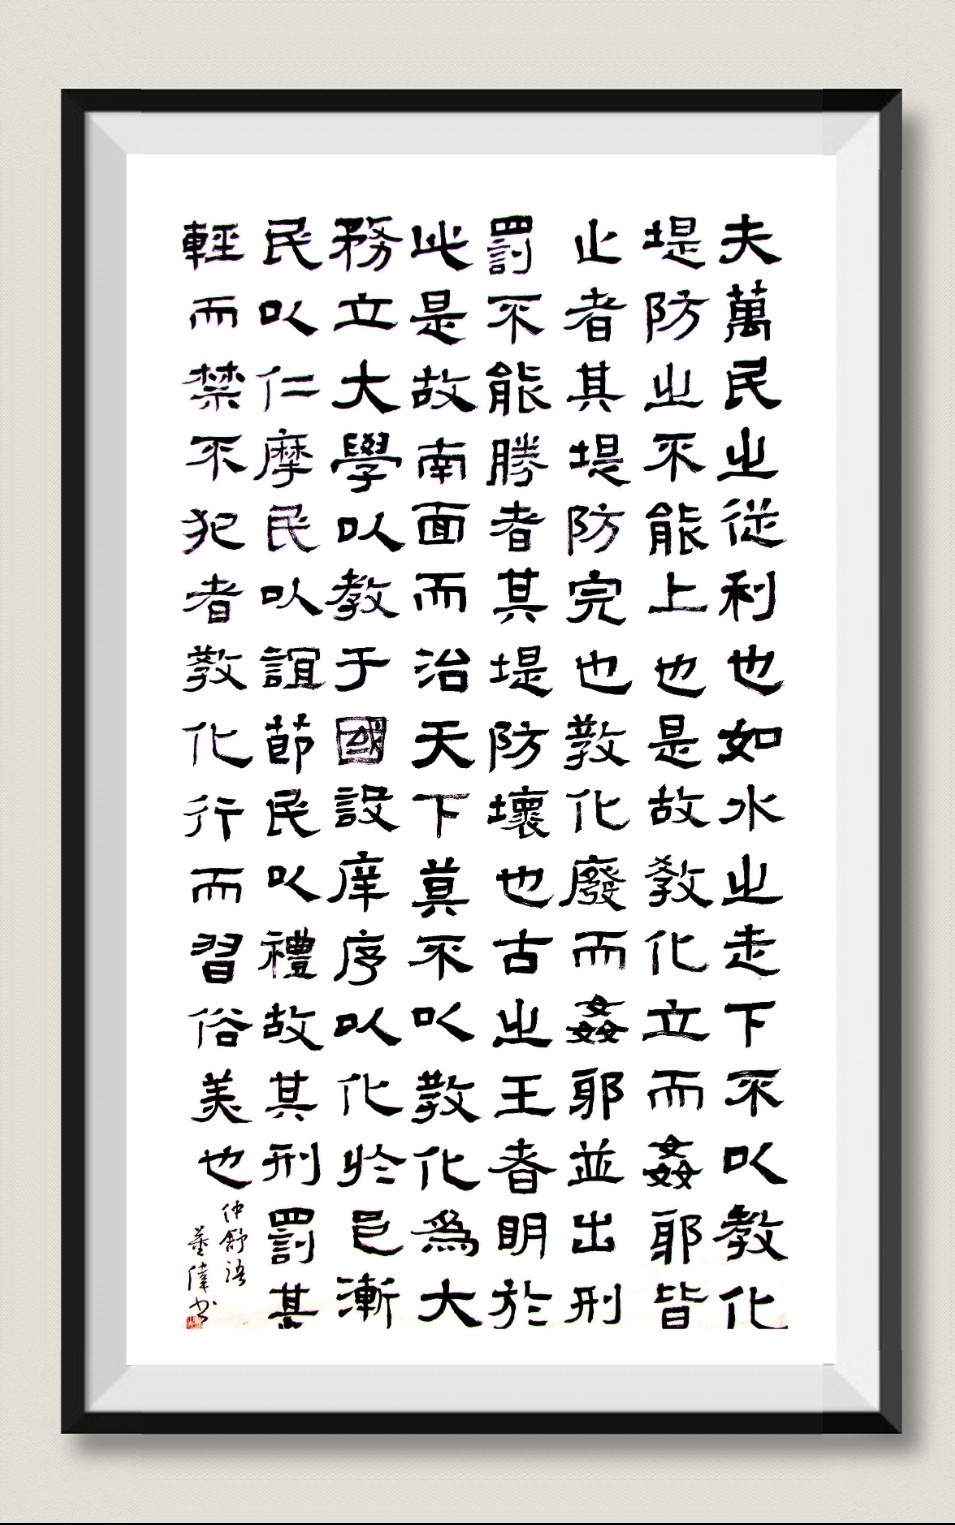 夫萬民之從利也如水之走下不以教化
堤防之不能上也是故教化立而姦耶皆
止者其堤防完也教化廢而姦耶並出刑
罰不能勝者其堤防壞也古之王者明於
此是故南面而治天下莫不以教化為大
務立大學以教于國設庠序以化於邑漸
民以仁摩民以誼節民以禮故其刑罰甚
輕而禁不犯者教化行而習俗美也
仲舒語
董偉书